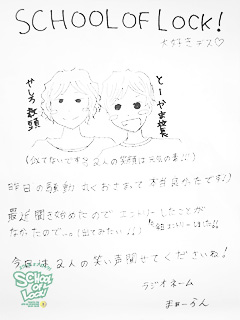 SCHOOL OF LOCK!
大好きデス♡
やしろ教頭
とーやま校長
(似てないですが 2人の笑顔は元気の素!!)
昨日の騒動 丸くおさまって本当良かったです!!
最近 聞き始めたので エントリーしたことが
なかったので…。(出てみたい♪♪)
今日は 2人の笑い声聞かせてくださいね!
ラジオネーム
SCHOOL OF LOCK!